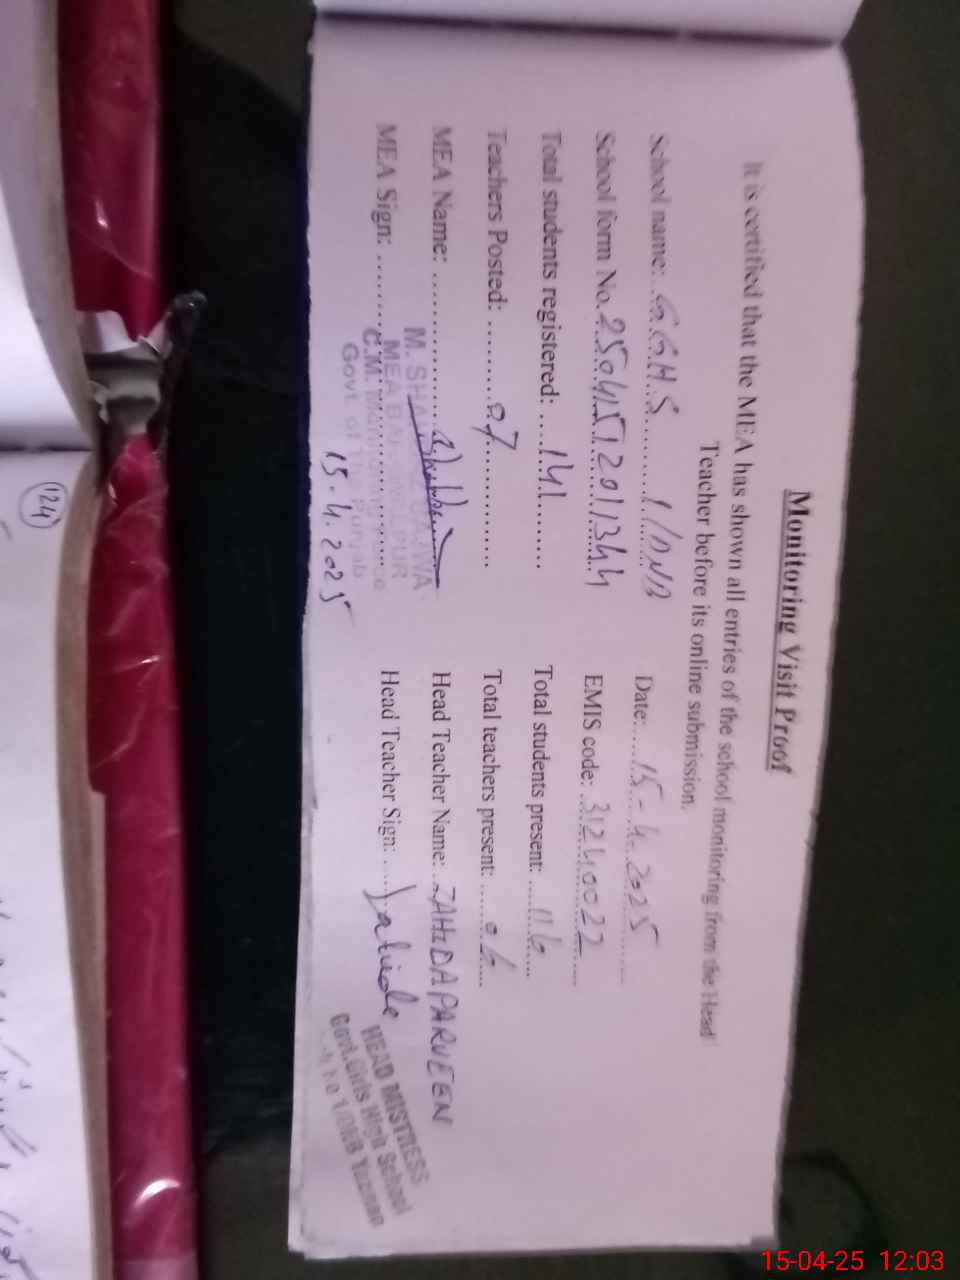 Monitoring Visit Proof
It is certified that the MEA has shown all entries of the school monitoring from the Head
Teacher before its online submission.
School name: GGHS 1/DNB Date: 15-4.2025
School form No. 25041512011344 EMIS code: 31240022
Total students registered: 141 Total students present: 116
Teachers Posted: 07 Total teachers present: 06
MEA Name: Head Teacher Name: ZAHIDA PARVEEN
MEA Sign: Head Teacher Sign:
M. SHA
MEA BAHAWALPUR
C.M. Monitoring Force
Govt. of The Punjab
15.4.2025
HEAD MISTRESS
Govt. Girls High School
1/DNB Yazman
(124)
15-04-25 12:03